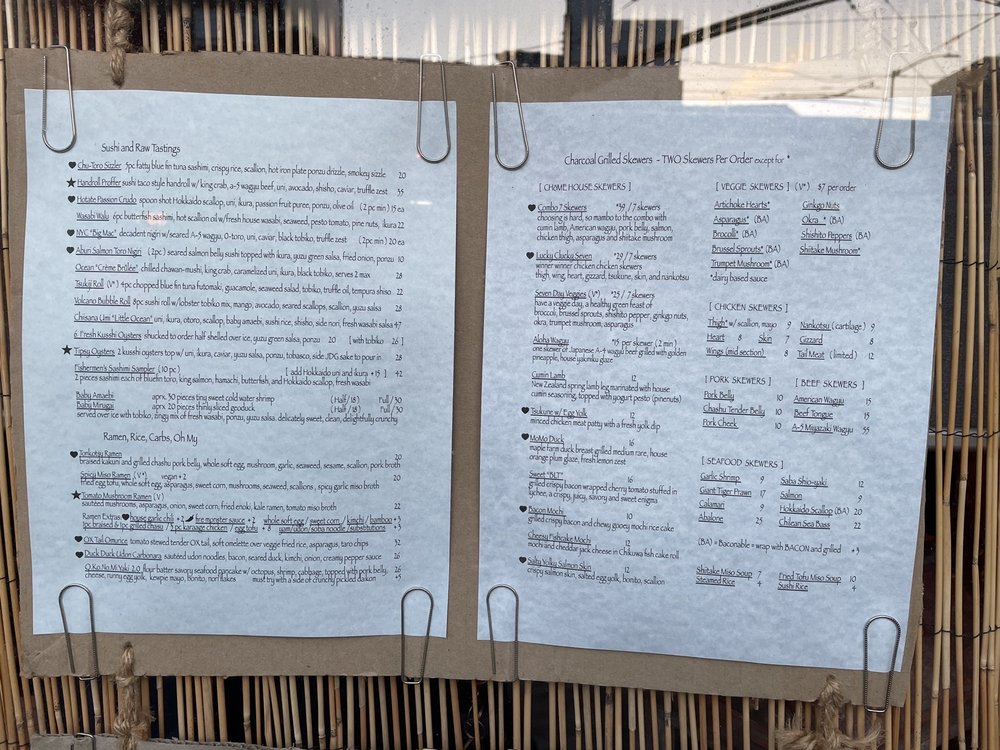 Sushi and Raw Tastings
♥ Chu-Toro Sizzler 5pc fatty blue fin tuna sashimi, crispy rice, scallion, hot iron plate ponzu drizzle, smokey sizzle 20
★ Handroll Proffer sushi taco style handroll w/ king crab, a-5 wagyu beef, uni, avocado, shisho, caviar, truffle zest 35
♥ Hotate Passion Crudo spoon shot Hokkaido scallop, uni, ikura, passion fruit puree, ponzu, olive oil (2 pc min) 15 ea
Wasabi Walu 6pc butterfish sashimi, hot scallion oil w/fresh house wasabi, seaweed, pesto tomato, pine nuts, ikura 22
♥ NYC "Big Mac" decadent nigiri w/seared A-5 wagyu, O-toro, uni, caviar, black tobiko, truffle zest (2pc min) 20 ea
♥ Aburi Salmon Toro Nigiri (2pc) seared salmon belly sushi topped with ikura, yuzu green salsa, fried onion, ponzu 10
Ocean "Crème Brûlée" chilled chawan-mushi, king crab, caramelized uni, ikura, black tobiko, serves 2 max 28
Tsukiji Roll (V*) 4pc chopped blue fin tuna futomaki, guacamole, seaweed salad, tobiko, truffle oil, tempura shiso 22
Volcano Bubble Roll 8pc sushi roll w/lobster tobiko mix, mango, avocado, seared scallops, scallion, yuzu salsa 28
Chisana Umi "Little Ocean" uni, ikura, otoro, scallop, baby amaebi, sushi rice, shisho, side nori, fresh wasabi salsa 47
6 Fresh Kusshi Oysters shucked to order half shelled over ice, yuzu green salsa, ponzu 20 [with tobiko 26 ]
★ Tipsy Oysters 2 kusshi oysters top w/ uni, ikura, caviar, yuzu salsa, ponzu, tobasco, side JDG sake to pour in 28
Fishermen's Sashimi Sampler (10 pc) [ add Hokkaido uni and ikura +15 ] 42
2 pieces sashimi each of bluefin toro, king salmon, hamachi, butterfish, and Hokkaido scallop, fresh wasabi
Baby Amaebi aprx. 30 pieces tiny sweet cold water shrimp (Half / 18) Full / 30
Baby Mirugai aprx. 20 pieces thinly sliced geoduck (Half / 18) Full / 30
served over ice with tobiko, zingy mix of fresh wasabi, ponzu, yuzu salsa. delicately sweet, clean, delightfully crunchy
Ramen, Rice, Carbs, Oh My
♥ Tonkotsu Ramen 20
braised kakuni and grilled chashu pork belly, whole soft egg, mushroom, garlic, seaweed, sesame, scallion, pork broth
Spicy Miso Ramen (V*) vegan +2 20
fried egg tofu, whole soft egg, asparagus, sweet corn, mushrooms, seaweed, scallions, spicy garlic miso broth
★ Tomato Mushroom Ramen (V)
sauteed mushrooms, asparagus, onion, sweet corn, fried enoki, kale ramen, tomato miso broth 22
Ramen Extras ♥ house garlic chili +2 fire monster sauce +2 whole soft egg / sweet corn / kimchi / bamboo +3
1pc braised & 1pc grilled chasu / 3 pc karaage chicken / egg tofu +8 yam/udon/soba noodle substitutions +3
♥ OX Tail Omurice tomato stewed tender OX tail, soft omelette over veggie fried rice, asparagus, taro chips 32
♥ Duck Duck Udon Carbonara sauteed udon noodles, bacon, seared duck, kimchi, onion, creamy pepper sauce 26
O.Ko.No.Mi.Yaki 2.0 flour batter savory seafood pancake w/ octopus, shrimp, cabbage, topped with pork belly, 26
cheese, runny egg yolk, kewpie mayo, bonito, nori flakes must try with a side of crunchy pickled daikon +5
Charcoal Grilled Skewers - TWO Skewers Per Order except for *
[ CHOME HOUSE SKEWERS ]
♥ Combo 7 Skewers *39 / 7 skewers
choosing is hard, so mambo to the combo with
cumin lamb, American wagyu, pork belly, salmon,
chicken thigh, asparagus and shiitake mushroom
♥ Lucky Clucky Seven *29 / 7 skewers
winner winner chicken chicken skewers
thigh, wing, heart, gizzard, tsukune, skin, and nankotsu
Seven Day Veggies (V*) *25 / 7 skewers
have a veggie day, a healthy green feast of
broccoli, brussel sprouts, shishito pepper, ginkgo nuts,
okra, trumpet mushroom, asparagus
Aloha Wagyu *15 per skewer (2 min)
one skewer of Japanese A-4 wagyu beef grilled with golden
pineapple, house yakiniku glaze
Cumin Lamb 12
New Zealand spring lamb leg marinated with house
cumin seasoning, topped with yogurt pesto (pinenuts)
♥ Tsukune w/ Egg Yolk 12
minced chicken meat patty with a fresh yolk dip
♥ MoMo Duck 16
maple farm duck breast grilled medium rare, house
orange plum glaze, fresh lemon zest
Sweet "BLT" 16
grilled crispy bacon wrapped cherry tomato stuffed in
lychee, a crispy, juicy, savory and sweet enigma
♥ Bacon Mochi 10
grilled crispy bacon and chewy gooey mochi rice cake
Cheesy Fishcake Mochi 12
mochi and cheddar jack cheese in Chikuwa fish cake roll
♥ Salty Yolky Salmon Skin 12
crispy salmon skin, salted egg yolk, bonito, scallion
[ VEGGIE SKEWERS ] (V*) $7 per order
Artichoke Hearts* Ginkgo Nuts
Asparagus* (BA) Okra * (BA)
Brocolli* (BA) Shishito Peppers (BA)
Brussel Sprouts* (BA) Shiitake Mushroom*
Trumpet Mushroom* (BA)
*dairy based sauce
[ CHICKEN SKEWERS ]
Thigh* w/ scallion, mayo 9 Nankotsu (cartilage) 9
Heart 8 Skin 7 Gizzard 8
Wings (mid section) 8 Tail Meat (limited) 12
[ PORK SKEWERS ] [ BEEF SKEWERS ]
Pork Belly 10 American Wagyu 15
Chashu Tender Belly 10 Beef Tongue 15
Pork Cheek 10 A-5 Miyazaki Wagyu 55
[ SEAFOOD SKEWERS ]
Garlic Shrimp 9 Saba Shio-yaki 12
Giant Tiger Prawn 17 Salmon 9
Calamari 9 Hokkaido Scallop (BA) 20
Abalone 25 Chilean Sea Bass 22
(BA) = Baconable = wrap with BACON and grilled +3
Shiitake Miso Soup 7 Fried Tofu Miso Soup 10
Steamed Rice 4 Sushi Rice 4